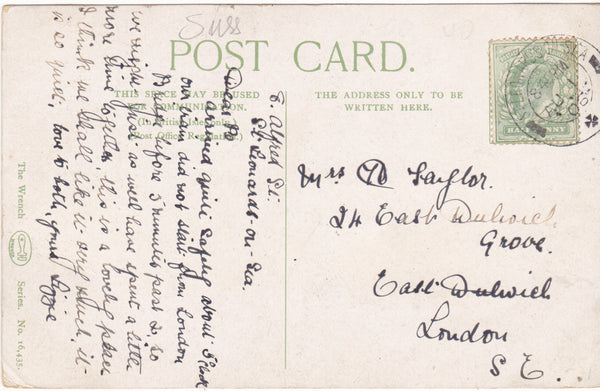 Suss
POST CARD.
THIS SPACE MAY BE USED
FOR COMMUNICATION.
(In British Isles only.)
(Post Office Regulation.)
THE ADDRESS ONLY TO BE
WRITTEN HERE.
HALF PENNY
Mrs W Taylor.
24 East Dulwich
Grove.
East Dulwich
London
S E.
Alfred St.
St. Leonards-on-Sea.
Dear
arrived quite safely about 5 o'clock
our train did not start from London
before 5 minutes past 2, so
we might just as well have spent a little
more time together, this is a lovely place
I think we shall like it very much, it
is so quiet, love to both, yours Lizzie
The Wrench
Series. No. 16,435.